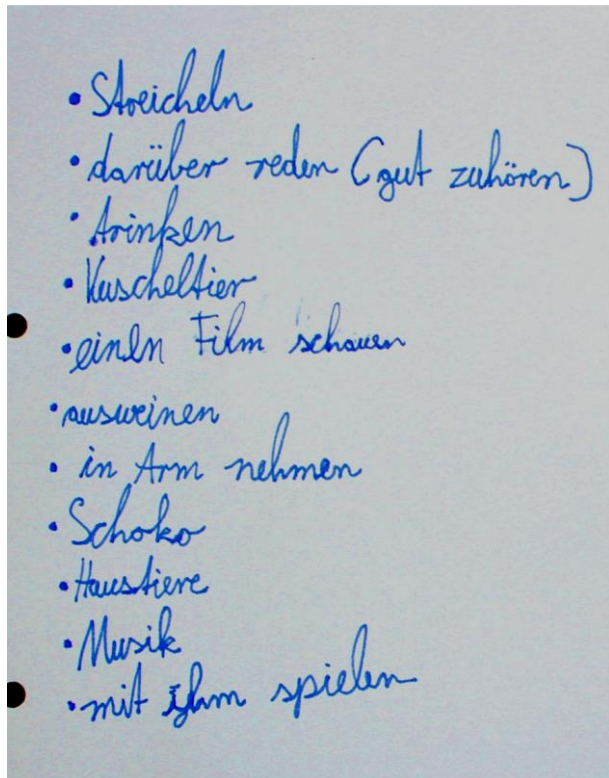 • Streicheln
• darüber reden (gut zuhören)
• trinken
• Kuscheltier
• einen Film schauen
• ausweinen
• in Arm nehmen
• Schoko
• Haustiere
• Musik
• mit ihm spielen